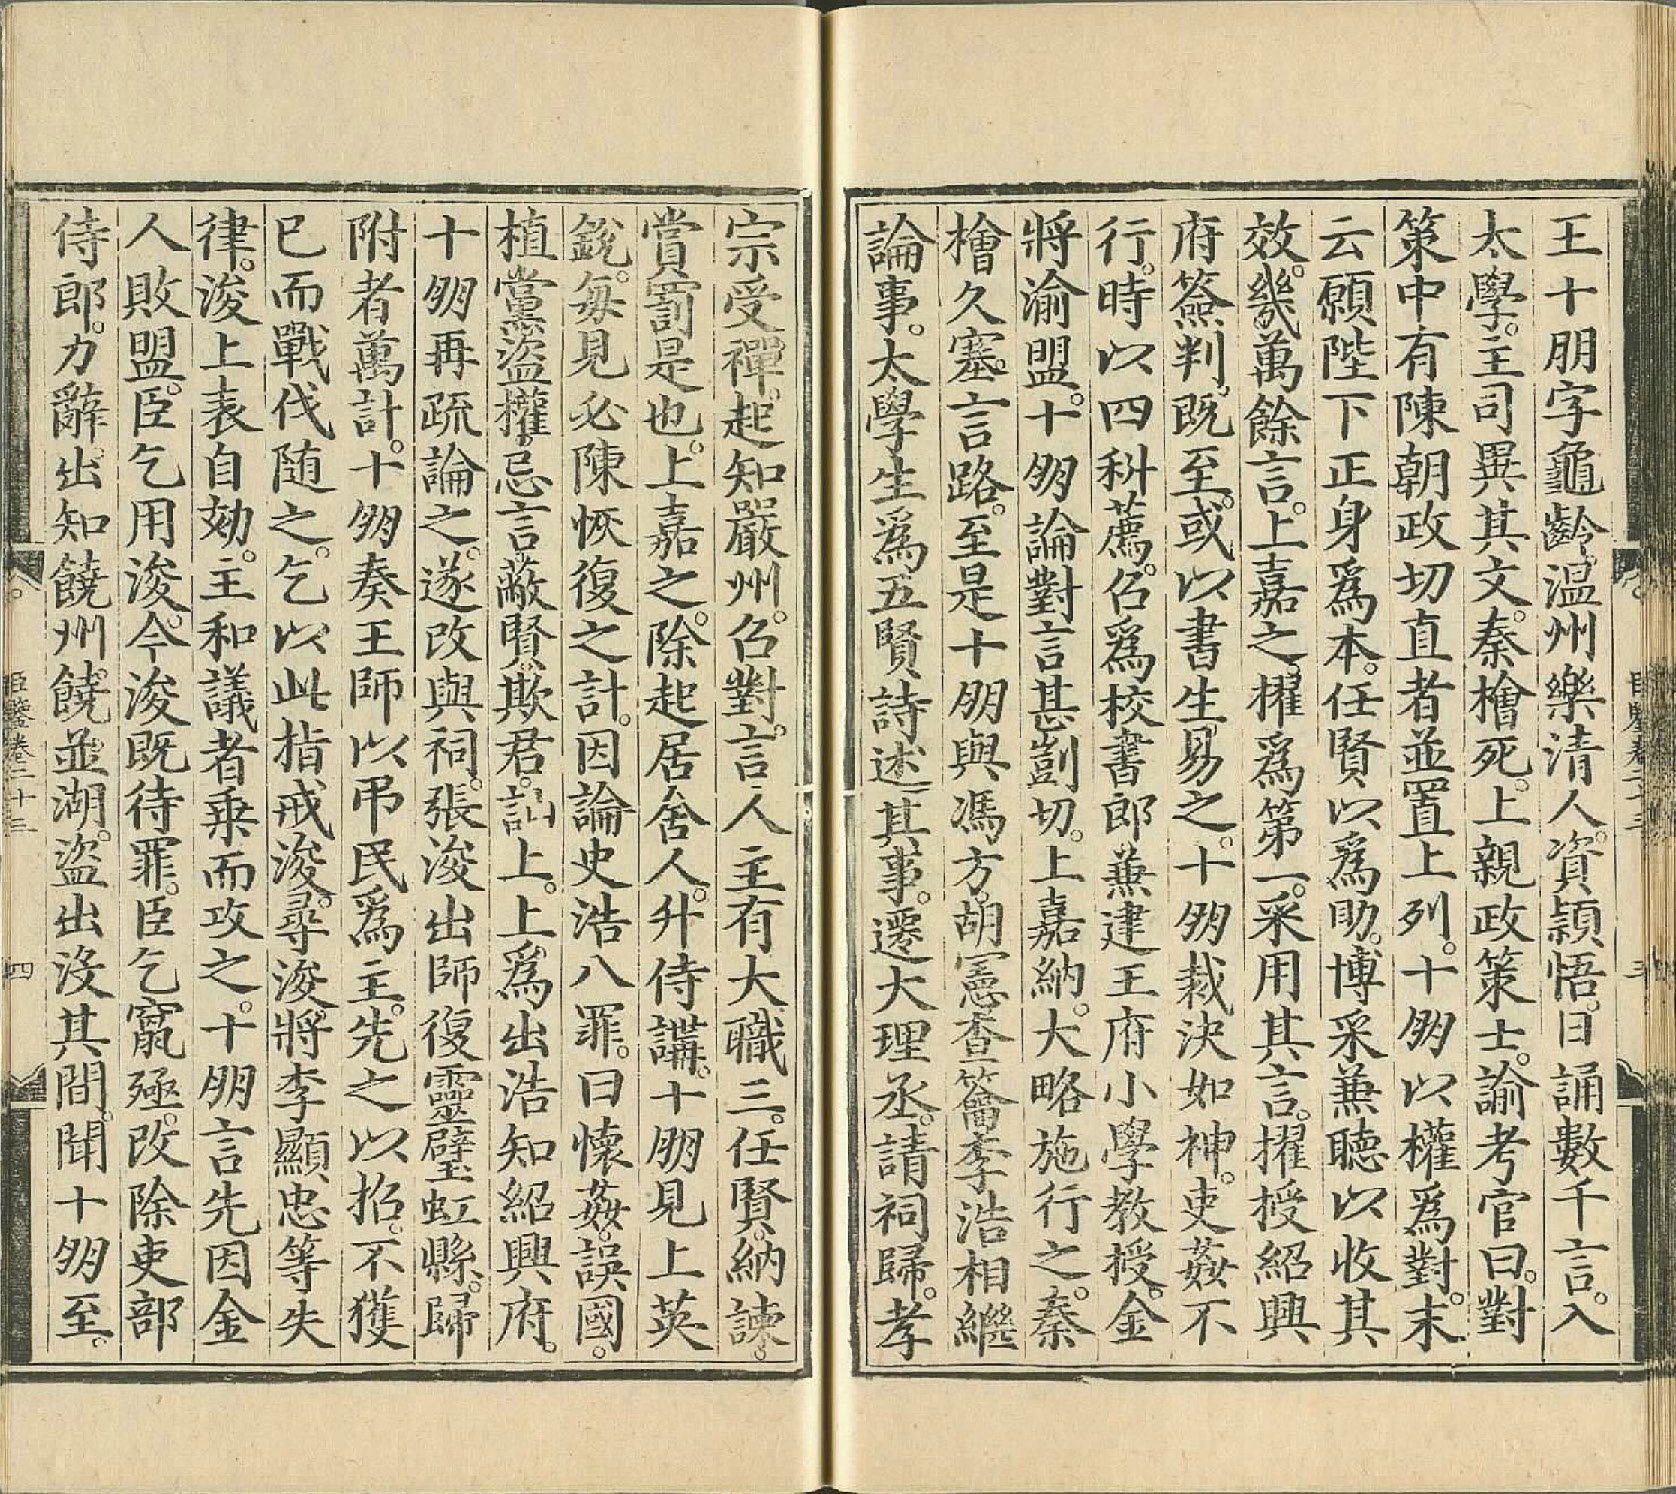 王十朋字龜齡。温州樂清人。資頴悟。日誦數千言。入
太學。主司異其文。秦檜死。上親政策士。諭考官曰。對
策中有陳朝政切直者並置上列。十朋以權爲對。末
云願陛下正身爲本。任賢以爲助。博采兼聽以收其
效。幾萬餘言。上嘉之。擢爲第一。采用其言。擢授紹興
府簽判。既至。或以書生易之。十朋裁決如神。吏姦不
行。時以四科薦。召爲校書郎。兼建王府小學教授。金
將渝盟。十朋論對言甚剴切。上嘉納。大略施行之。秦
檜久塞言路。至是十朋與馮方。胡憲查籥李浩相繼
論事。太學生爲五賢詩述其事。遷大理丞。請祠歸。孝
宗受禪。起知嚴州。召對。言人主有大職三。任賢。納諫。
賞罰是也。上嘉之。除起居舍人。升侍講。十朋見上英
銳。每見必陳恢復之計。因論史浩八罪。曰懷姦。誤國。
植黨。盜權。忌言。蔽賢。欺君。訕上。上爲出浩知紹興府。
十朋再疏論之。遂改與祠。張浚出師復靈壁虹縣。歸
附者萬計。十朋奏王師以弔民爲主。先之以招。不獲
已而戰伐随之。乞以此指戒浚。尋浚將李顯忠等失
律。浚上表自劾。主和議者乗而攻之。十朋言先因金
人敗盟。臣乞用浚。今浚既待罪。臣乞竄殛。改除吏部
侍郎。力辭。出知饒州。饒並湖。盜出沒其間。聞十朋至。
臣鑒卷二十三
四